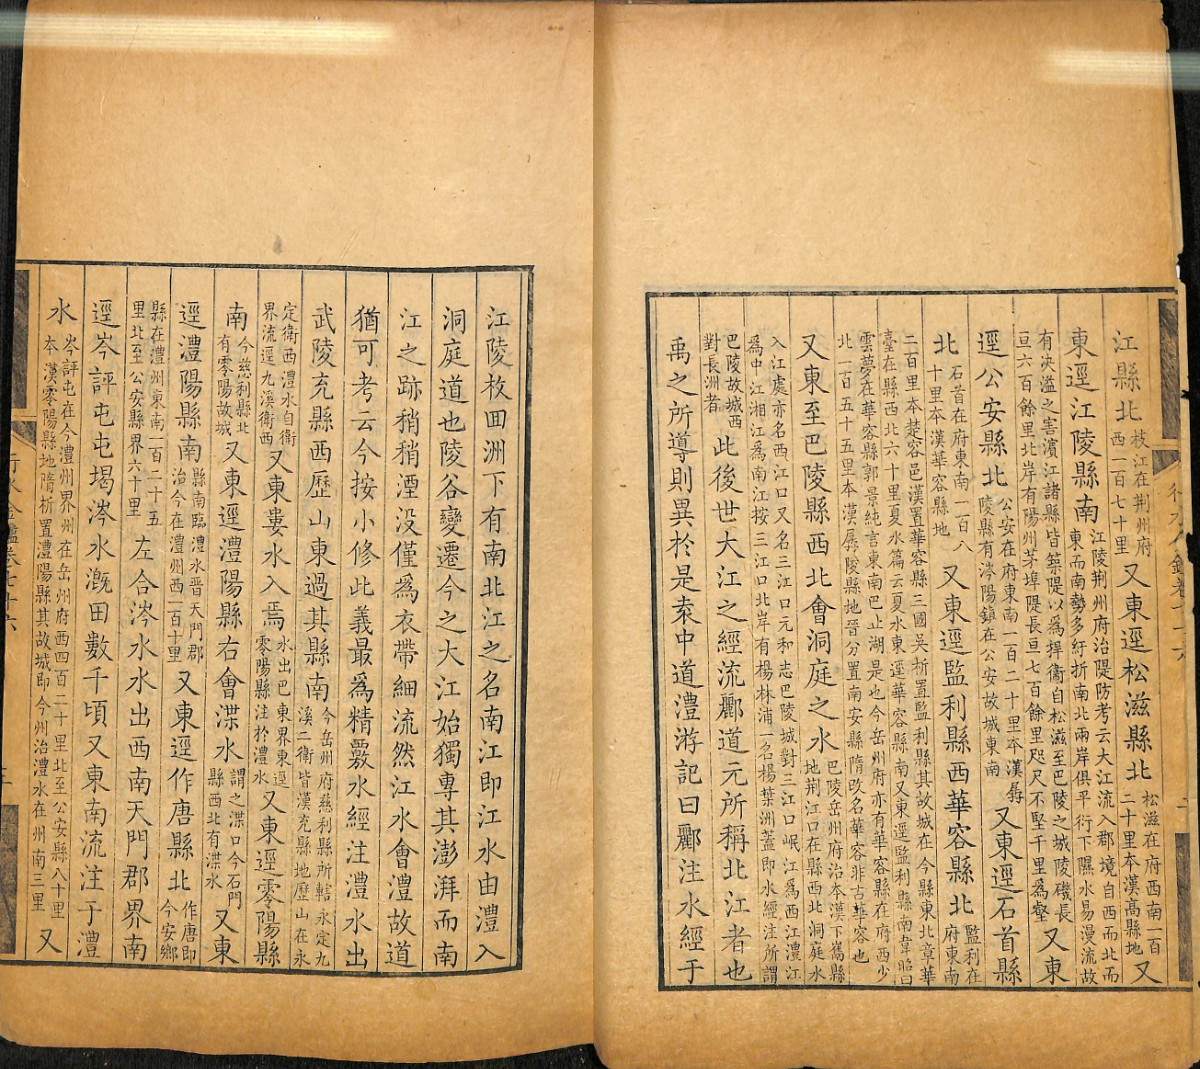 江縣北枝江在荆州府西一百七十里又東逕松滋縣北松滋在府西南一百二十里本漢高縣地又
東逕江陵縣南江陵荆州府治隄防考云大江流入郡境自西而北而東而南勢多紆折南北兩岸俱平衍下隰水易漫流故
有决溢之害濱江諸縣皆築隄以爲捍衞自松滋至巴陵之城陵磯長亘六百餘里北岸有陽州茅埠隄長亘七百餘里咫尺不堅千里爲壑又東
逕公安縣北公安在府東南一百二十里本漢孱陵縣有涔陽鎮在公安故城東南又東逕石首縣
北石首在府東南一百八十里本漢華容縣地又東逕監利縣西華容縣北監利在府東南
二百里本楚容邑漢置華容縣三國吳析置監利縣其故城在今縣東北章華臺在縣西北六十里夏水篇云夏水東逕華容縣南又東逕監利縣南韋昭曰
雲夢在華容縣郭景純言東南巴丘湖是也今岳州府亦有華容縣在府西少北一百五十五里本漢孱陵縣地晉分置南安縣隋改名華容非古華容也
又東至巴陵縣西北會洞庭之水巴陵岳州府治本漢下雋縣地荆江口在縣西北洞庭水
入江處亦名西江口又名三江口元和志巴陵城對三江口岷江爲西江澧江爲中江湘江爲南江按三江口北岸有楊林浦一名楊葉洲蓋即水經注所謂
巴陵故城西對長洲者此後世大江之經流酈道元所稱北江者也
禹之所導則異於是袁中道澧游記曰酈注水經于
江陵枚回洲下有南北江之名南江即江水由澧入
洞庭道也陵谷變遷今之大江始獨專其澎湃而南
江之跡稍稍湮没僅爲衣帶細流然江水會澧故道
猶可考云今按小修此義最爲精覈水經注澧水出
武陵充縣西歷山東過其縣南今岳州府慈利縣所轄永定九溪二衞皆漢充縣地歷山在永
定衞西澧水自衞界流逕九溪衞西又東婁水入焉水出巴東界東逕零陽縣注於澧水又東逕零陽縣
南今慈利縣北有零陽故城又東逕澧陽縣右會渫水謂之渫口今石門縣西北有渫水又東
逕澧陽縣南縣南臨澧水晉天門郡治今在澧州西一百十里又東逕作唐縣北作唐即今安鄉
縣在澧州東南一百二十五里北至公安縣界六十里左合涔水水出西南天門郡界南
逕岑評屯屯堨涔水漑田數千頃又東南流注于澧
水岑評屯在今澧州界州在岳州府西四百二十里北至公安縣八十里本漢零陽縣地隋析置澧陽縣其故城即今州治澧水在州南三里又